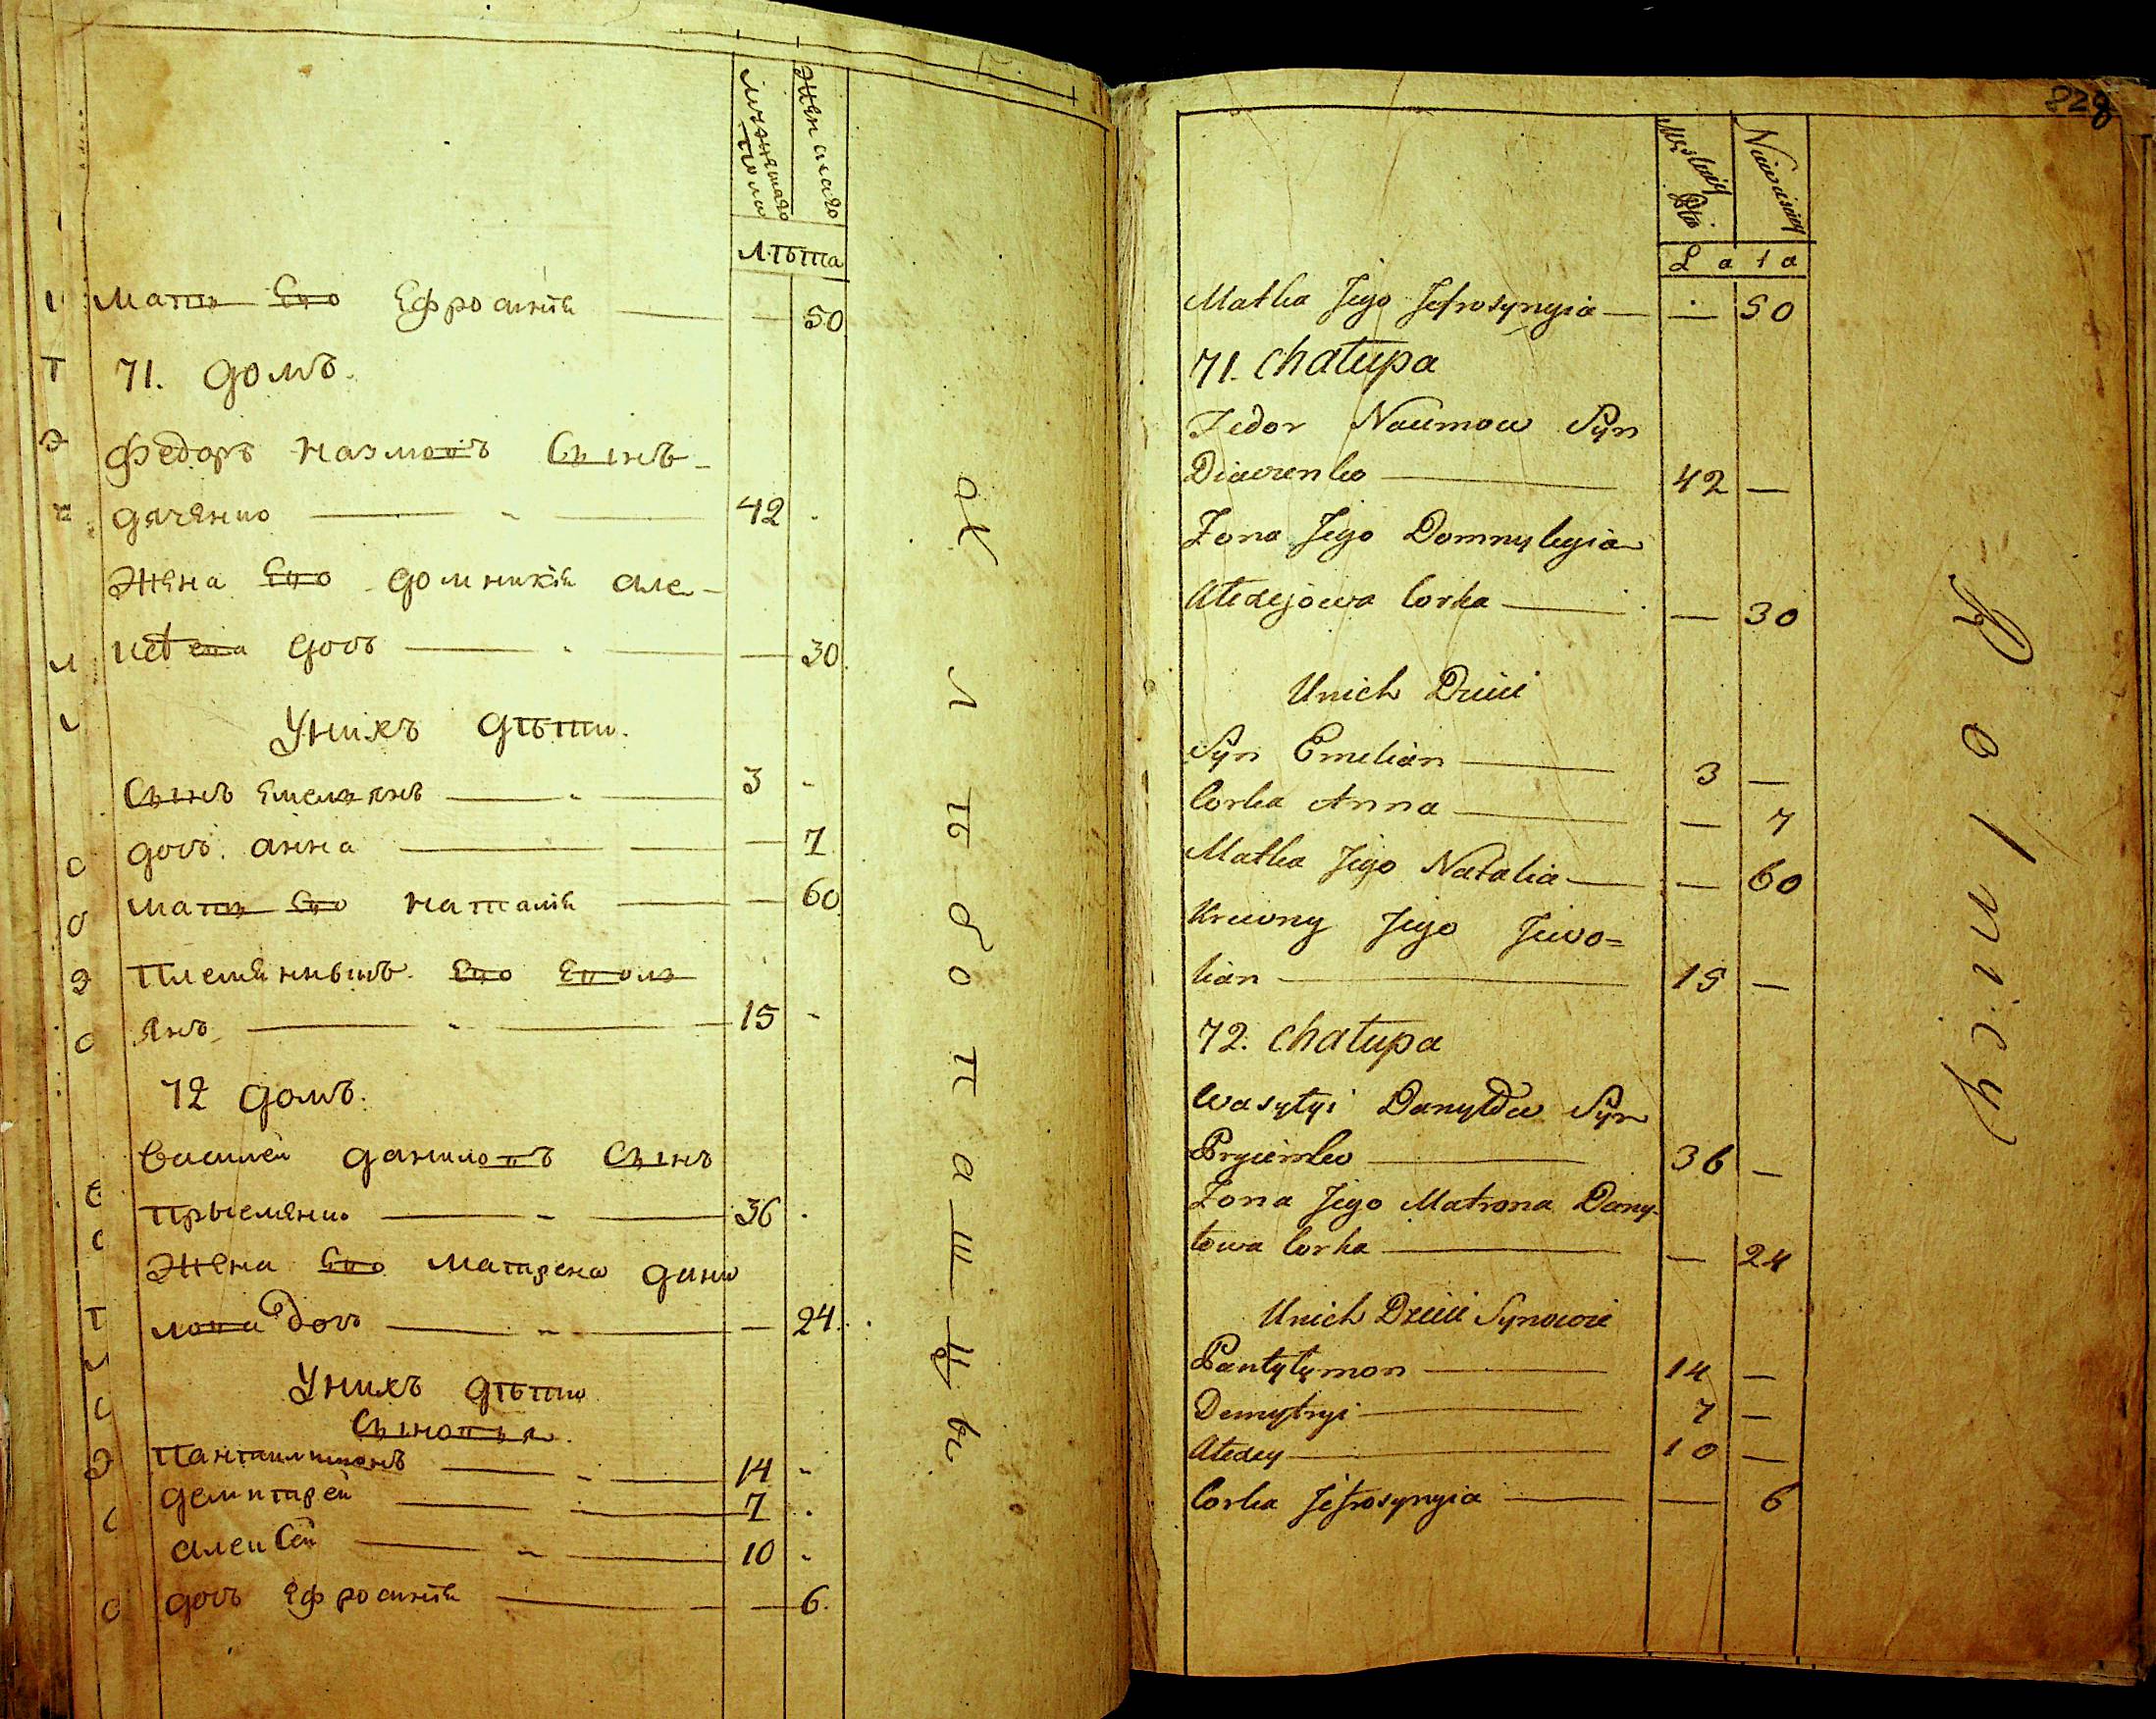 Мужескаго пола
Женскаго
Лѣта
Мать Его Ефросинія — — 50
71. домъ.
Федоръ Наумовъ Сынъ
дяченко — 42
Жена Его домникія Але-
ксѣева дочь — — 30
Унихъ дѣти.
Сынъ Емельянъ — 3
дочь анна — — 7
Мать Его Наталія — — 60
Племянныкъ Его Евол
янъ — 15
72 домъ.
Василей даниловъ Сынъ
Прыеменко — 36
Жена Его Матрена дани
лова дочь — — 24
Унихъ дѣти
Сыновья
Пантилимонъ — 14
демитрей — 7
алексей — 10
дочь Ефросинія — — 6
Хлѣбопашцы
828
Męskiey Płci
Niewiesciey
Lata
Matka Jego Jefrosynyia — — 50
71. Chałupa
Fedor Naumow Syn
Diaczenko — 42 —
Zona Jego Domnykyia
Alexejowa Corka — — 30
Unich Dzieci
Syn Emelian — 3 —
Corka Anna — — 7
Matka Jego Natalia — — 60
Krewny Jego Jewo=
lian — 15 —
72. Chałupa
Wasylyi Danyłow Syn
Pryiemko — 36 —
Zona Jego Matrona Dany-
łowa Corka — — 24
Unich Dzieci Synowie
Pantylymon — 14 —
Demytryi — 7 —
Alexey — 10 —
Corka Jefrosynyia — — 6
Rolnicy